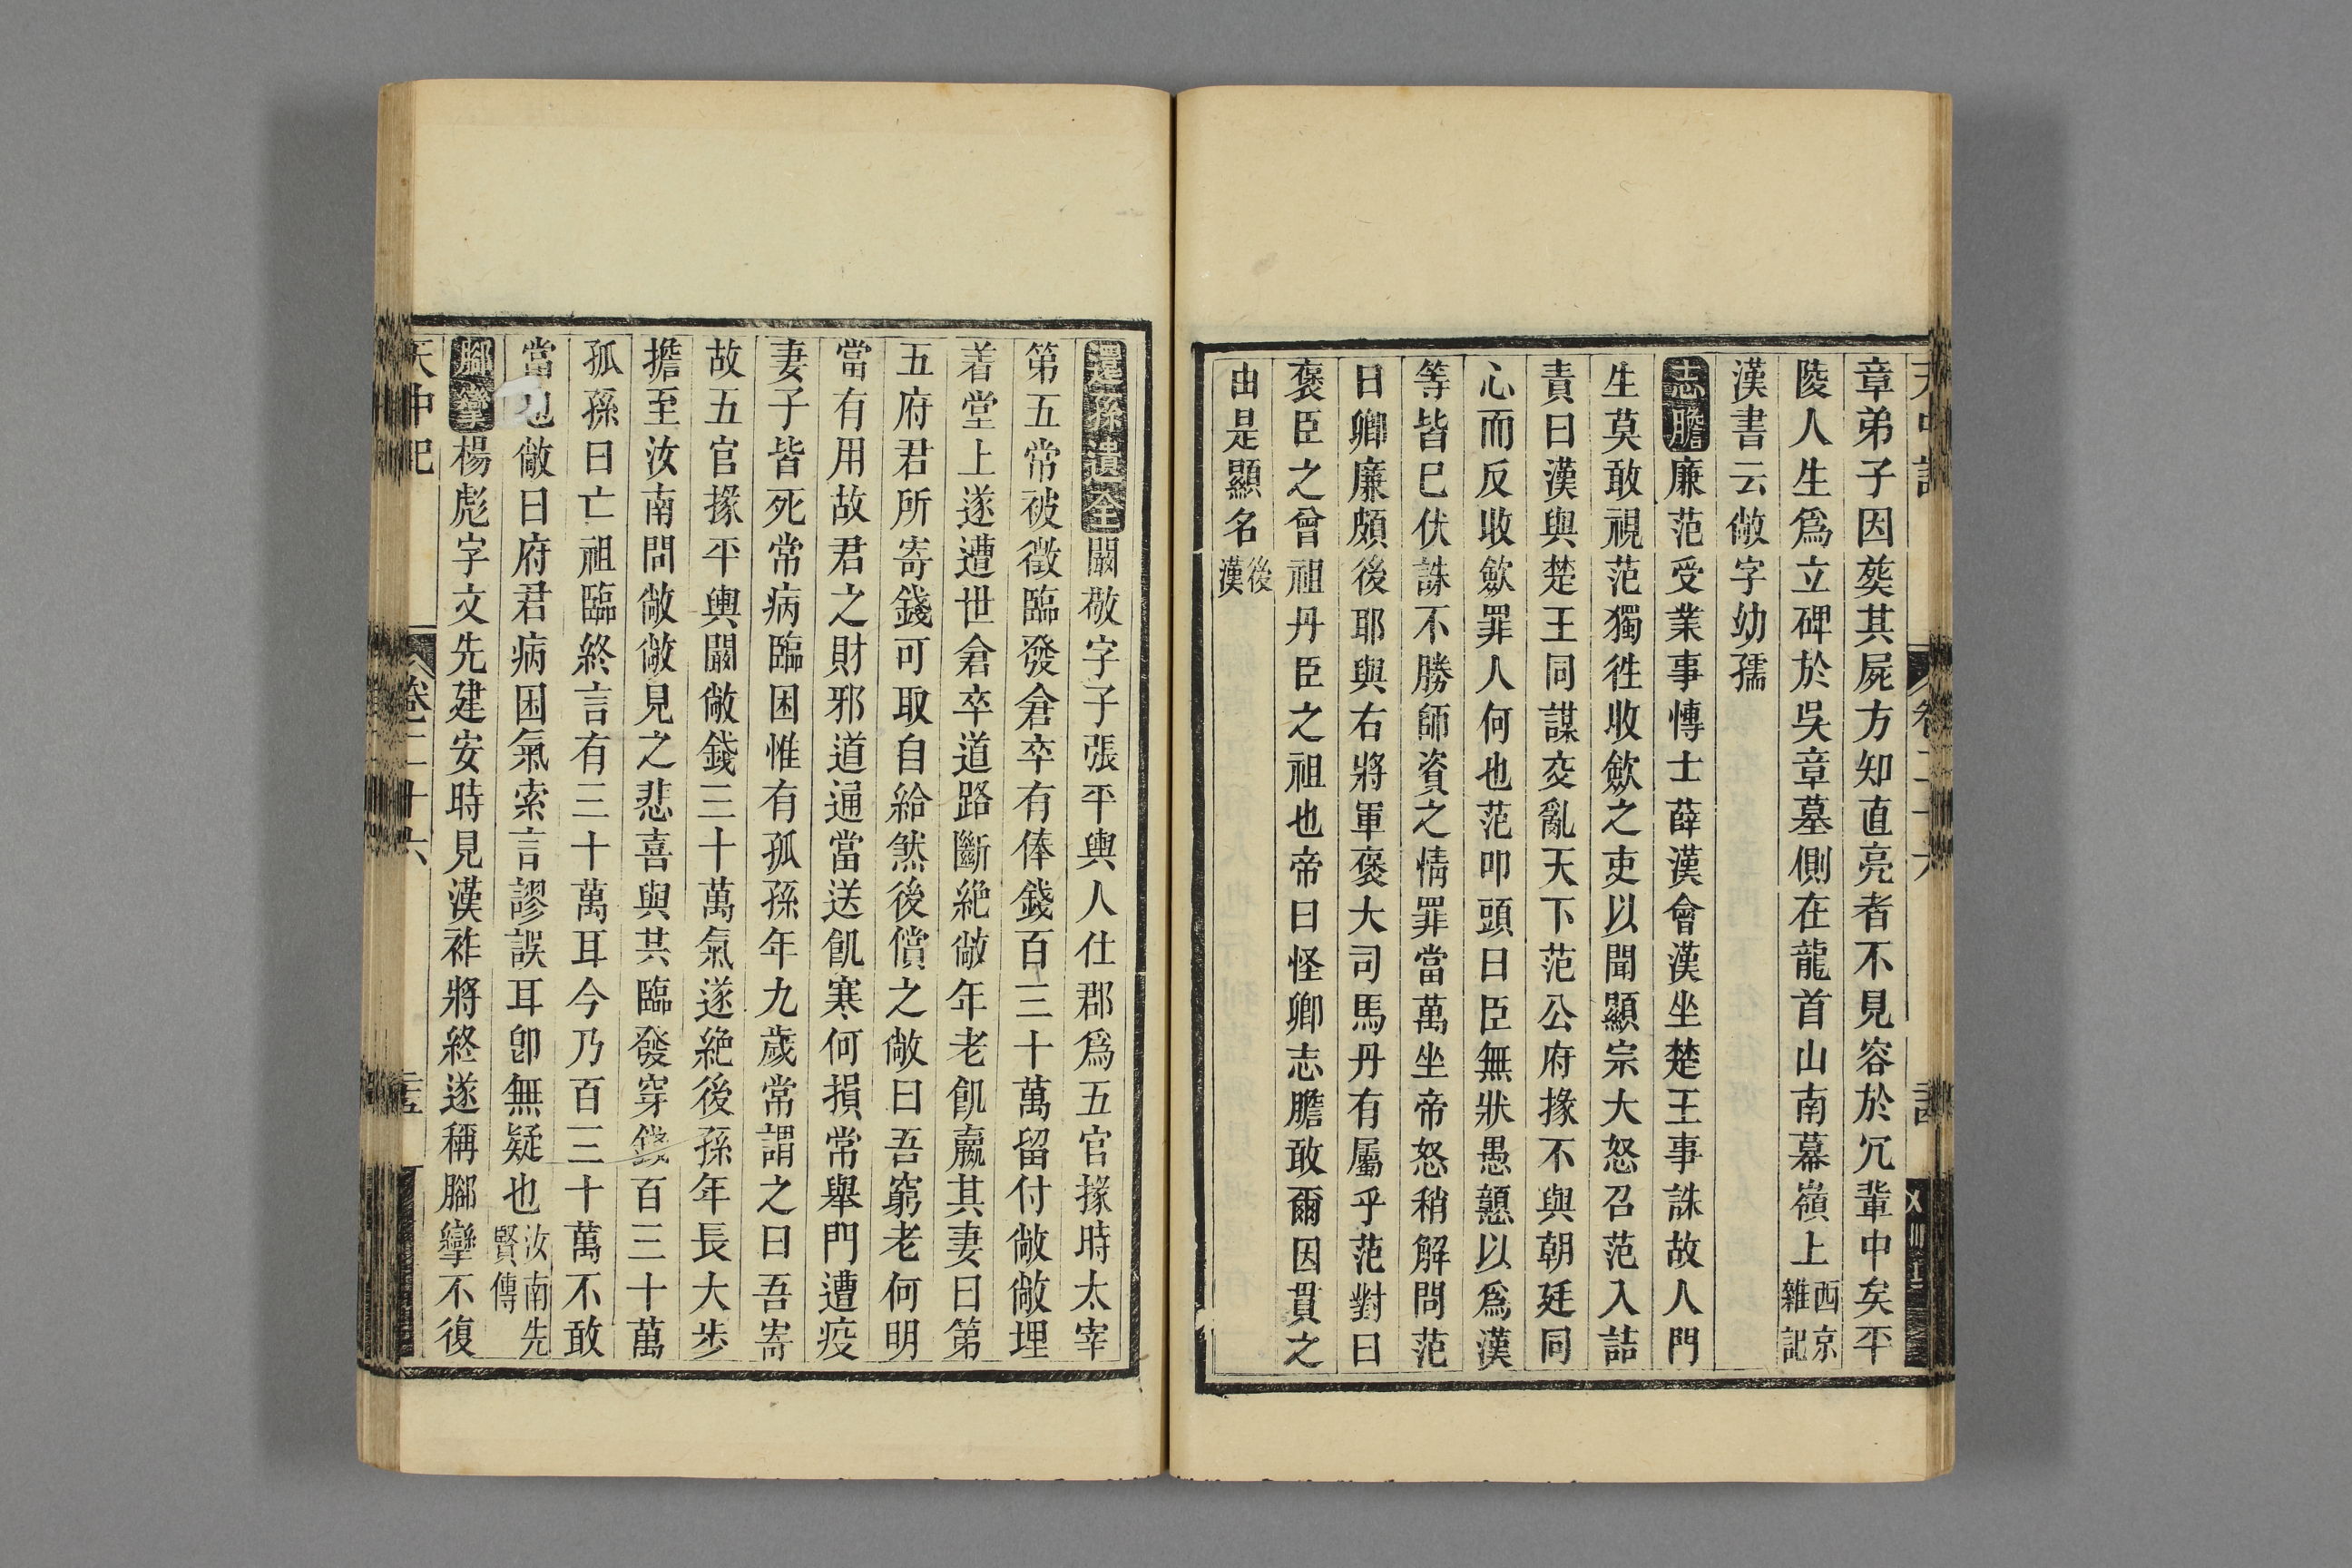 章弟子因葬其屍方知直亮者不見容於冗輩中矣平
陵人生爲立碑於吳章墓側在龍首山南幕嶺上西京雜記
漢書云敞字幼孺
志膽廉范受業事博士薛漢會漢坐楚王事誅故人門
生莫敢視范獨徃收歛之吏以聞顯宗大怒召范入詰
責曰漢與楚王同謀交亂天下范公府掾不與朝廷同
心而反收歛罪人何也范叩頭曰臣無狀愚戇以爲漢
等皆巳伏誅不勝師資之情罪當萬坐帝怒稍解問范
曰卿廉頗後耶與右將軍褒大司馬丹有屬乎范對曰
褒臣之曾祖丹臣之祖也帝曰怪卿志膽敢爾因貰之
由是顯名後漢
還孫遺金闞敞字子張平輿人仕郡爲五官掾時太宰
第五常被徵臨發倉卒有俸錢百三十萬留付敞敞埋
着堂上遂遭世倉卒道路斷絶敞年老飢羸其妻曰第
五府君所寄錢可取自給然後償之敞曰吾窮老何明
當有用故君之財邪道通當送飢寒何損常舉門遭疫
妻子皆死常病臨困惟有孤孫年九歲常謂之曰吾寄
故五官掾平輿闞敞錢三十萬氣遂絶後孫年長大步
擔至汝南問敞敞見之悲喜與共臨發穿錢百三十萬
孤孫曰亡祖臨終言有三十萬耳今乃百三十萬不敢
當也敞曰府君病困氣索言謬誤耳卽無疑也汝南先賢傳
腳攣楊彪字文先建安時見漢祚將終遂稱腳攣不復
天中記 卷二十六